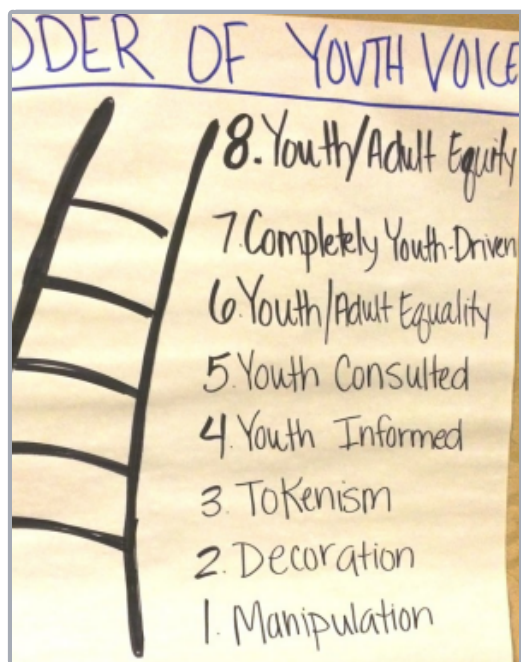 DDER OF YOUTH VOICE
8. Youth/Adult Equity
7. Completely Youth-Driven
6. Youth/Adult Equality
5. Youth Consulted
4. Youth Informed
3. Tokenism
2. Decoration
1. Manipulation